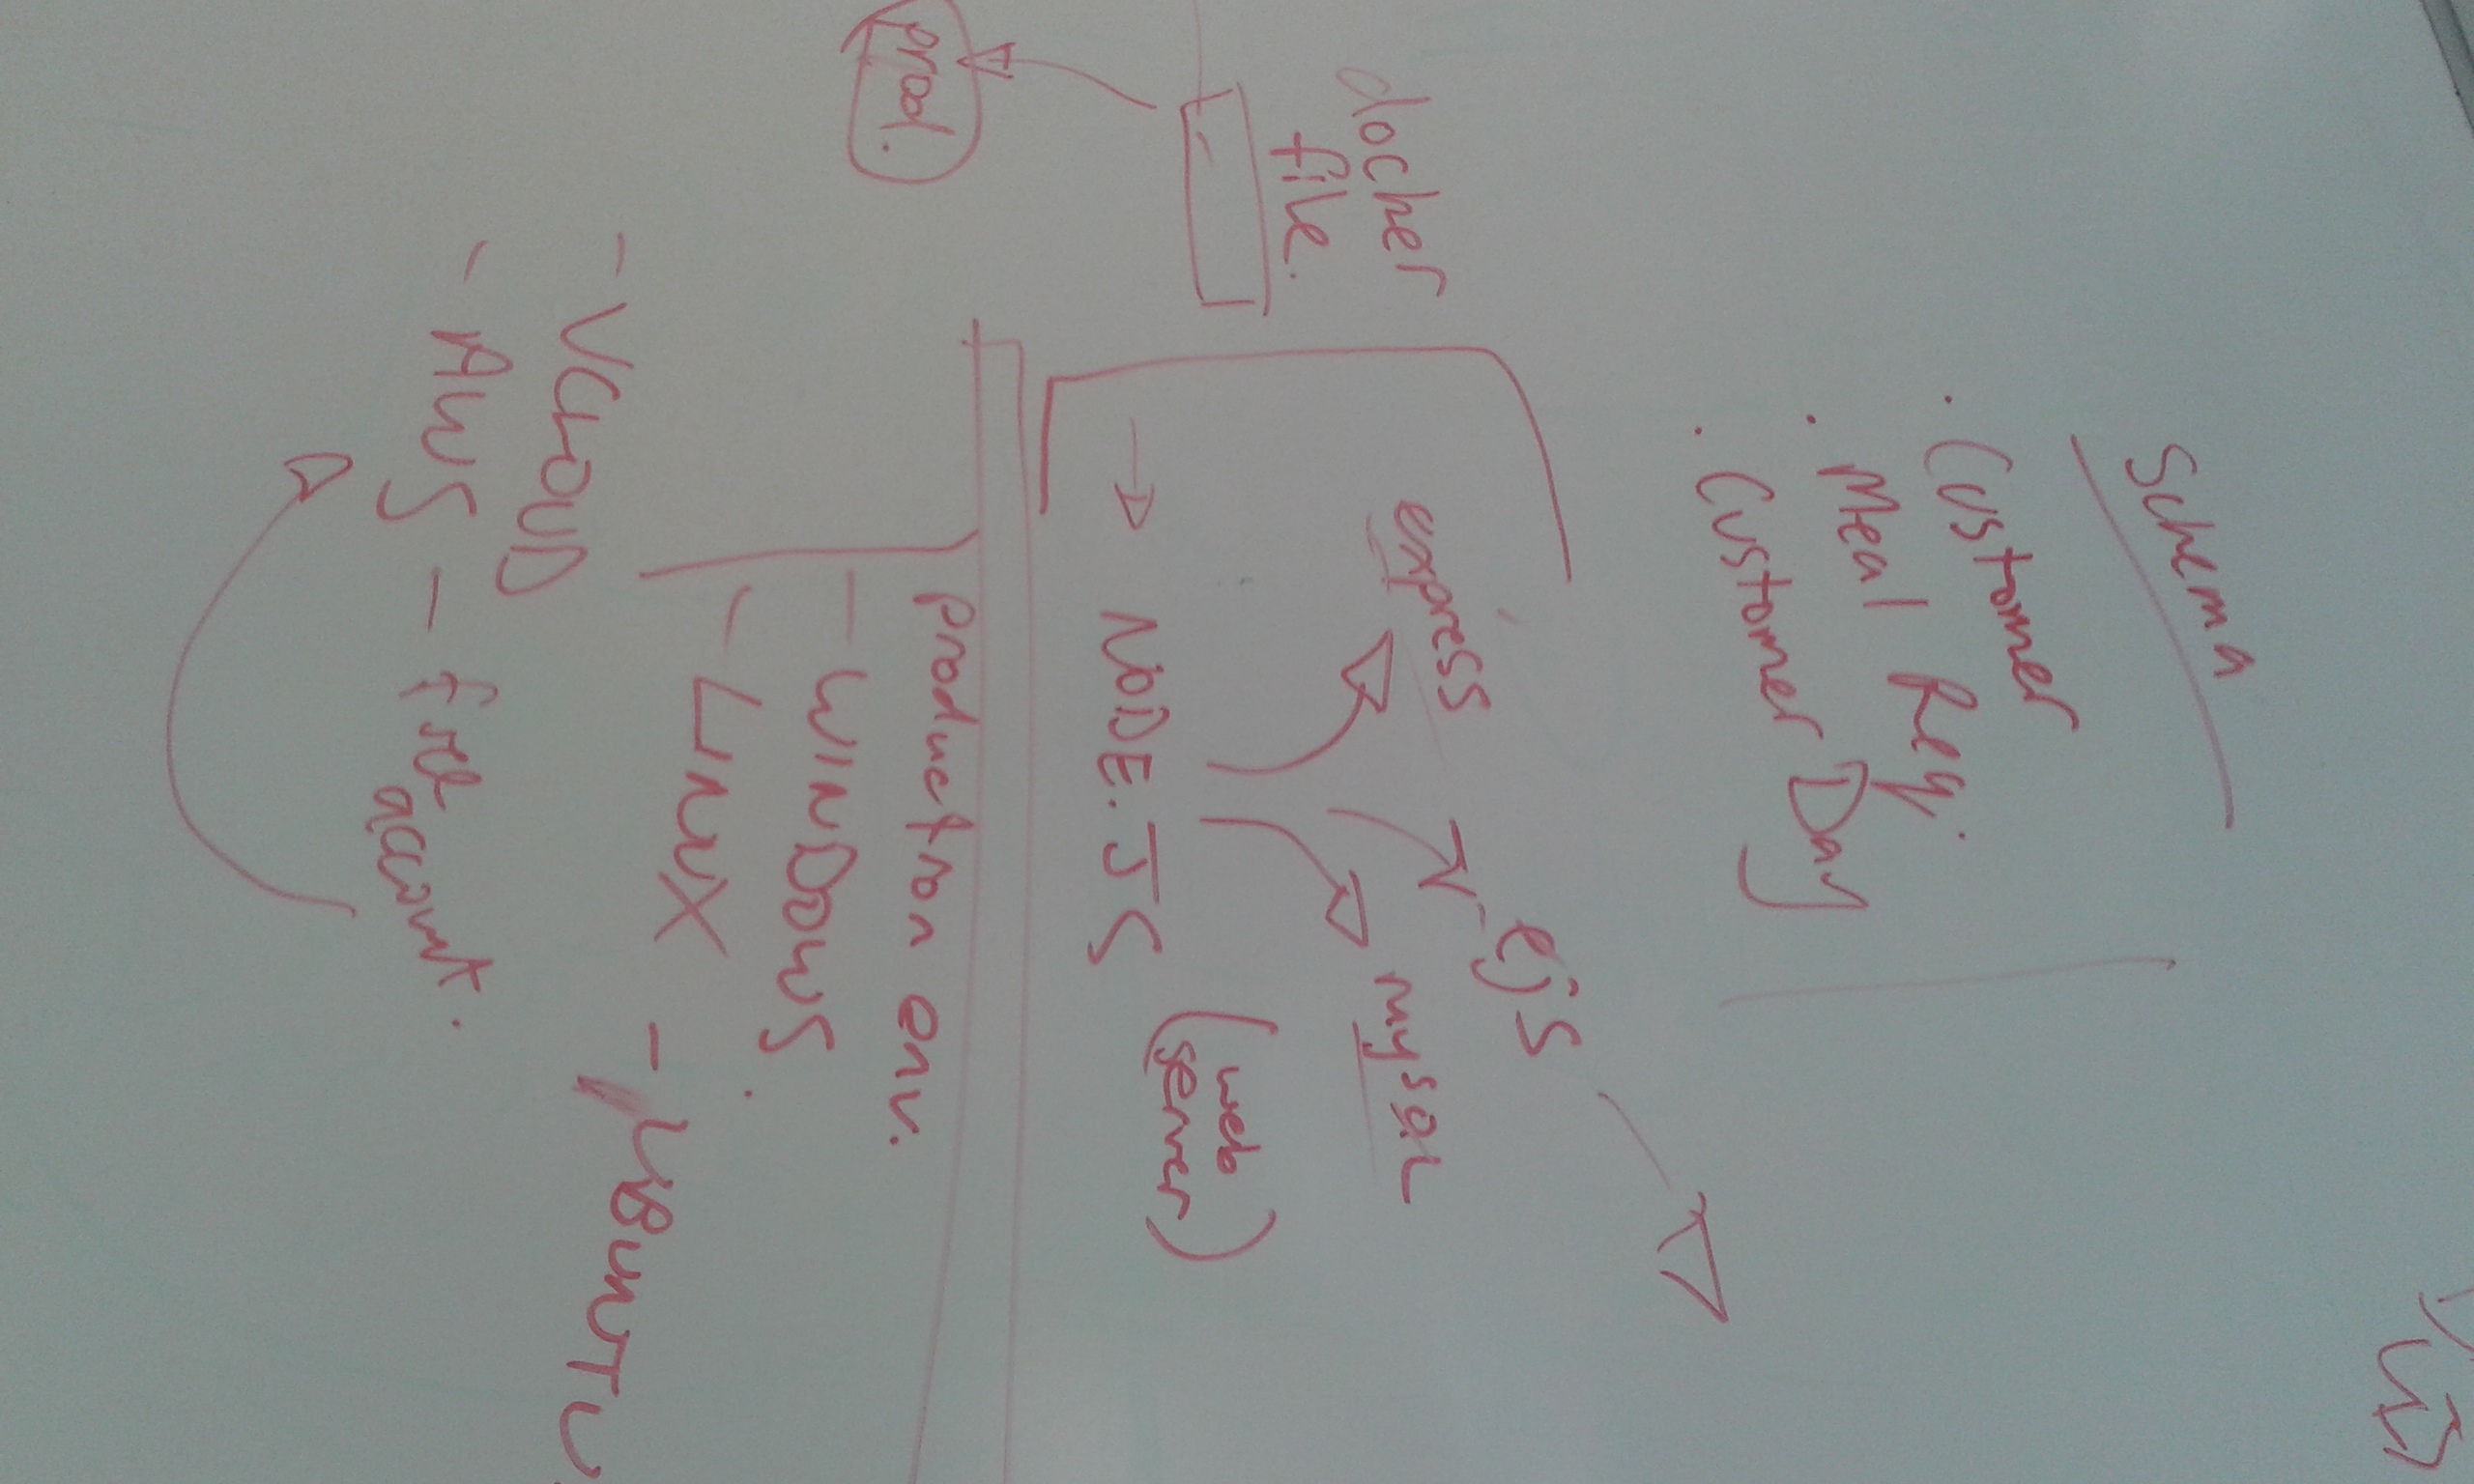 Schema
. Customer
. Meal Req.
. Customer Day
ejs
express
mysQL
docker
file.
(web
server)
→ NODE.JS
prod.
production env.
- WINDOWS.
- LINUX - UBUNTU.
- VCLOUD
- AWS - free
account.